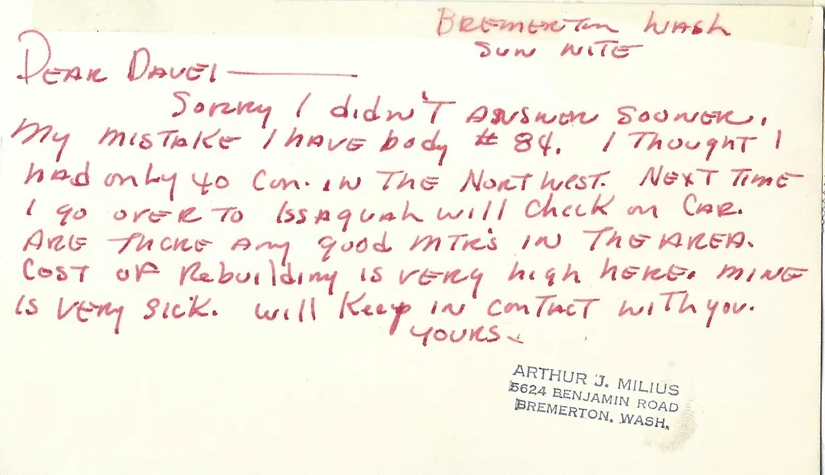 BREMERTON WASH
SUN NITE
DEAR DAVE:
SORRY I didN'T ANSWER SOONER.
My MISTAKE I HAVE body # 84. I THOUGHT I
had only 40 Con. IN THE NORTHWEST. NEXT TIME
I go OVER TO ISSAQUAH will Check on CAR.
ARE THERE Any good MTRS IN THE AREA.
COST OF Rebuilding IS VERY high HERE. MINE
IS VERY SICK. Will Keep IN CONTACT WITH you.
YOURS.
ARTHUR J. MILIUS
5624 BENJAMIN ROAD
BREMERTON, WASH.